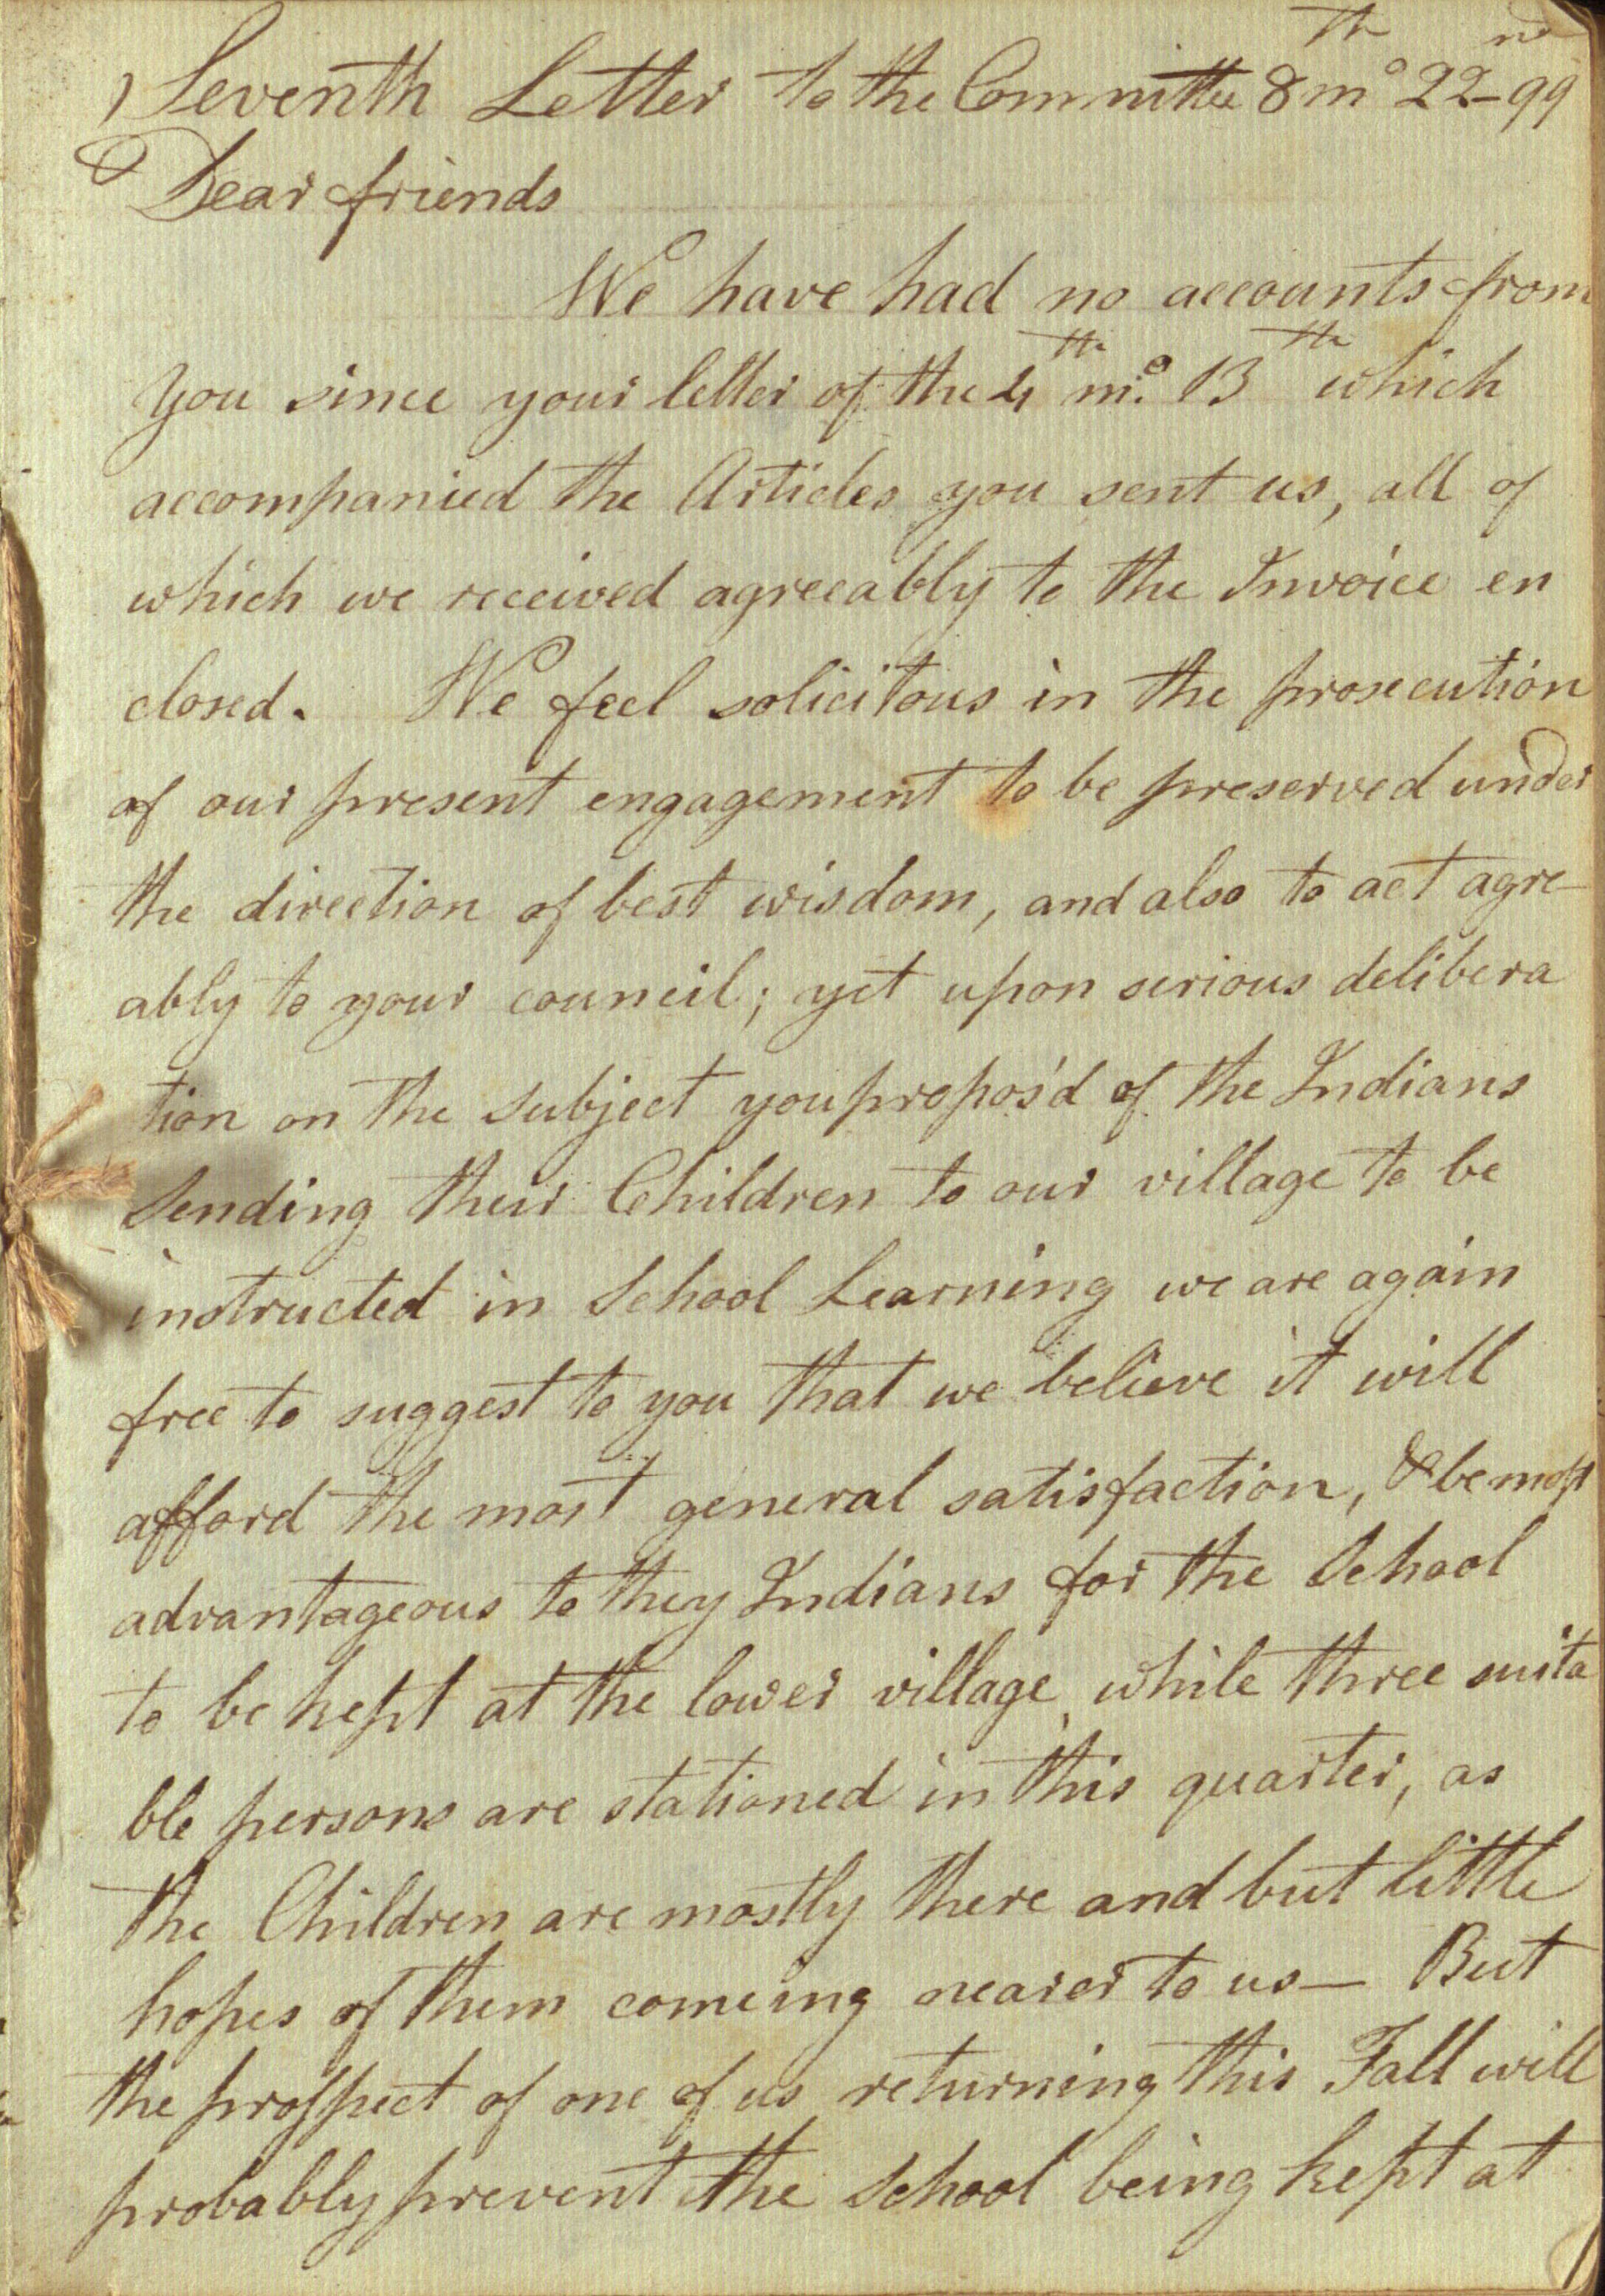 Seventh Letter to the Committee 8th mo 22nd - 99
Dear friends
We have had no accounts from
you since your letter of the 4th mo. 13th which
accompanied the Articles you sent us, all of
which we received agreeably to the Invoice en
closed. We feel solicitous in the prosecution
of our present engagement to be preserved under
the direction of best wisdom, and also to act agre-
ably to your council; yet upon serious delibera
tion on the subject you propos'd of the Indians
sending their Children to our village to be
instructed in School Learning we are again
free to suggest to you that we believe it will
afford the most general satisfaction, & be most
advantageous to they Indians for the School
to be kept at the lower village, while three suita
ble persons are stationed in this quarter, as
the Children are mostly there and but little
hopes of them comeing nearer to us — But
the prospect of one of us returning this Fall will
probably prevent the School being kept at